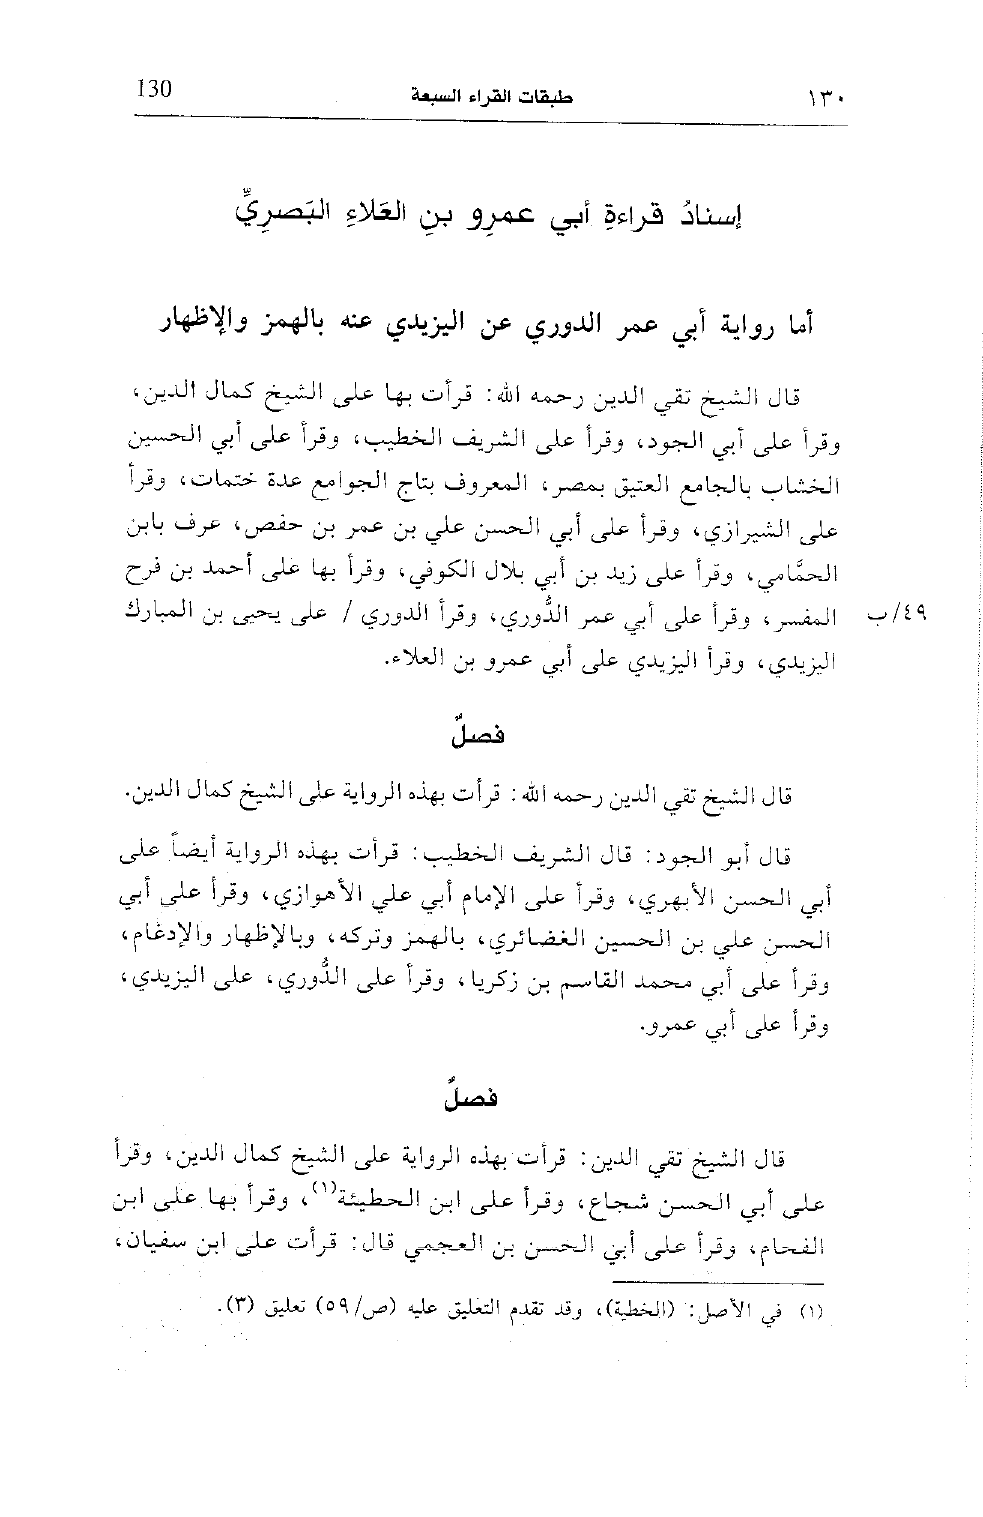 ١٣٠ طبقات القراء السبعة 130
إسنادُ قراءةِ أبي عمرِو بنِ العَلاءِ البَصرِيِّ
أما رواية أبي عمر الدوري عن اليزيدي عنه بالهمز والإظهار
قال الشيخ تقي الدين رحمه الله: قرأت بها على الشيخ كمال الدين،
وقرأ على أبي الجود، وقرأ على الشريف الخطيب، وقرأ على أبي الحسين
الخشاب بالجامع العتيق بمصر، المعروف بتاج الجوامع عدة ختمات، وقرأ
على الشيرازي، وقرأ على أبي الحسن علي بن عمر بن حفص، عرف بابن
الحمَّامي، وقرأ على زيد بن أبي بلال الكوفي، وقرأ بها على أحمد بن فرح
٤٩/ب المفسر، وقرأ على أبي عمر الدُّوري، وقرأ الدوري / على يحيى بن المبارك
اليزيدي، وقرأ اليزيدي على أبي عمرو بن العلاء.
فصلٌ
قال الشيخ تقي الدين رحمه الله: قرأت بهذه الرواية على الشيخ كمال الدين.
قال أبو الجود: قال الشريف الخطيب: قرأت بهذه الرواية أيضاً على
أبي الحسن الأبهري، وقرأ على الإمام أبي علي الأهوازي، وقرأ على أبي
الحسن علي بن الحسين الغضائري، بالهمز وتركه، وبالإظهار والإدغام،
وقرأ على أبي محمد القاسم بن زكريا، وقرأ على الدُّوري، على اليزيدي،
وقرأ على أبي عمرو.
فصلٌ
قال الشيخ تقي الدين: قرأت بهذه الرواية على الشيخ كمال الدين، وقرأ
على أبي الحسن شجاع، وقرأ على ابن الحطيئة(١)، وقرأ بها على ابن
الفحام، وقرأ على أبي الحسن بن العجمي قال: قرأت على ابن سفيان،
(١) في الأصل: (الخطية)، وقد تقدم التعليق عليه (ص/٥٩) تعليق (٣).